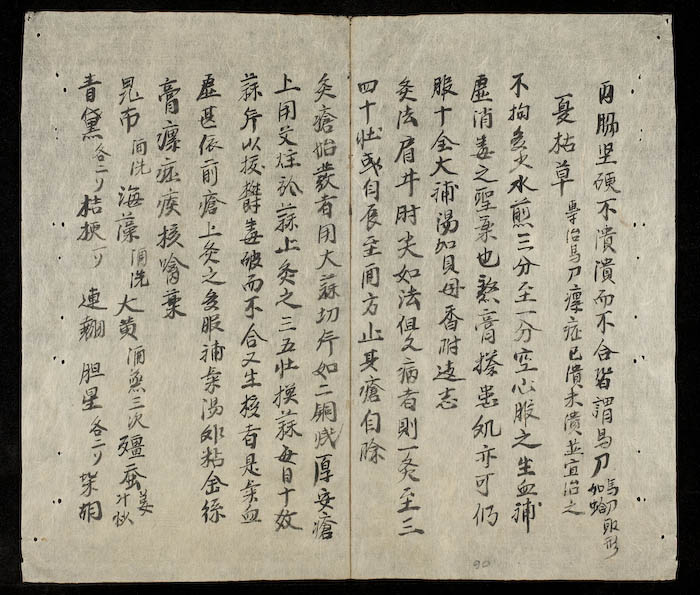 坚硬不潰潰而不合皆謂馬刀 馬刀取形如
夏枯草 專治馬刀瘰症已潰未潰並宜治之
不拘多少水煎三分至一分空心服之生血補
虛消毒之聖藥也熬膏搽患処亦可仍
服十全大補湯加貝母香附遠志
灸法肩井肘尖如法但久病者則一灸至三
四十壯或自至方止其瘡自除
灸瘡始發者用大蒜切片如二銅戋厚安瘡
上用艾炷於蒜上灸之三五壯換蒜每日十效
蒜片以拔欝毒破而不合又生核者是氣血
虛甚依前瘡上灸之多服補氣湯外粘金絲
膏瘰痰核噙藥
昆布 酒洗 海藻 酒洗 大黄 酒蒸三次 殭蚕 姜汁炒
青黛 各二 桔梗 一 連翹 胆星 各二 柴胡
90